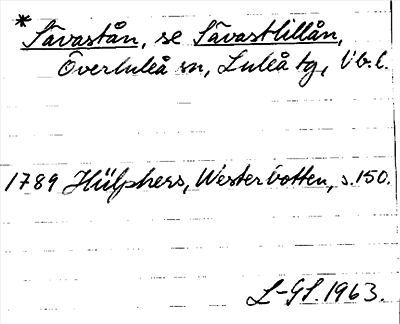 *Sävastån, se Sävastlillån,
Överluleå sn, Luleå tg, Vb.l.
1789 Hülphers, Westerbotten, s.150.
L-GS.1963.